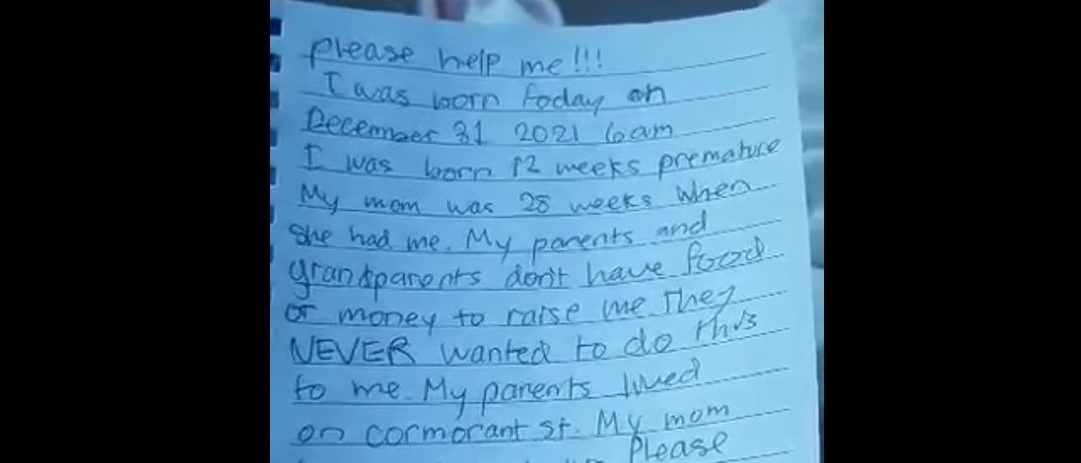 please help me!!!
I was born today on
December 31 2021 6am
I was born 12 weeks premature
My mom was 28 weeks when
she had me. My parents and
grandparents dont have food
or money to raise me They
NEVER wanted to do this
to me. My parents lived
on cormorant st. My mom
Please